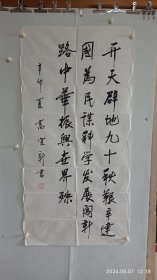 开天辟地九十秋艰辛建
国为民谋科学发展图新
路中华振兴世界殊
辛卯夏
书
2024.05.07 12:15